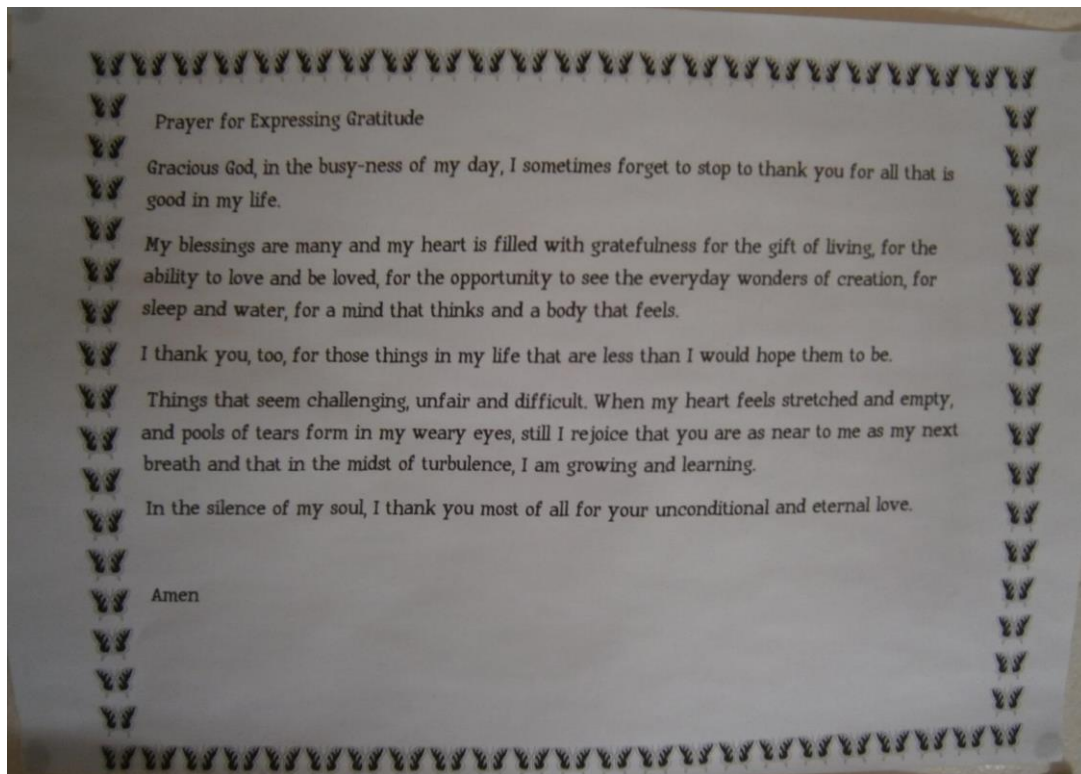 Prayer for Expressing Gratitude
Gracious God, in the busy-ness of my day, I sometimes forget to stop to thank you for all that is
good in my life.
My blessings are many and my heart is filled with gratefulness for the gift of living, for the
ability to love and be loved, for the opportunity to see the everyday wonders of creation, for
sleep and water, for a mind that thinks and a body that feels.
I thank you, too, for those things in my life that are less than I would hope them to be.
Things that seem challenging, unfair and difficult. When my heart feels stretched and empty,
and pools of tears form in my weary eyes, still I rejoice that you are as near to me as my next
breath and that in the midst of turbulence, I am growing and learning.
In the silence of my soul, I thank you most of all for your unconditional and eternal love.
Amen